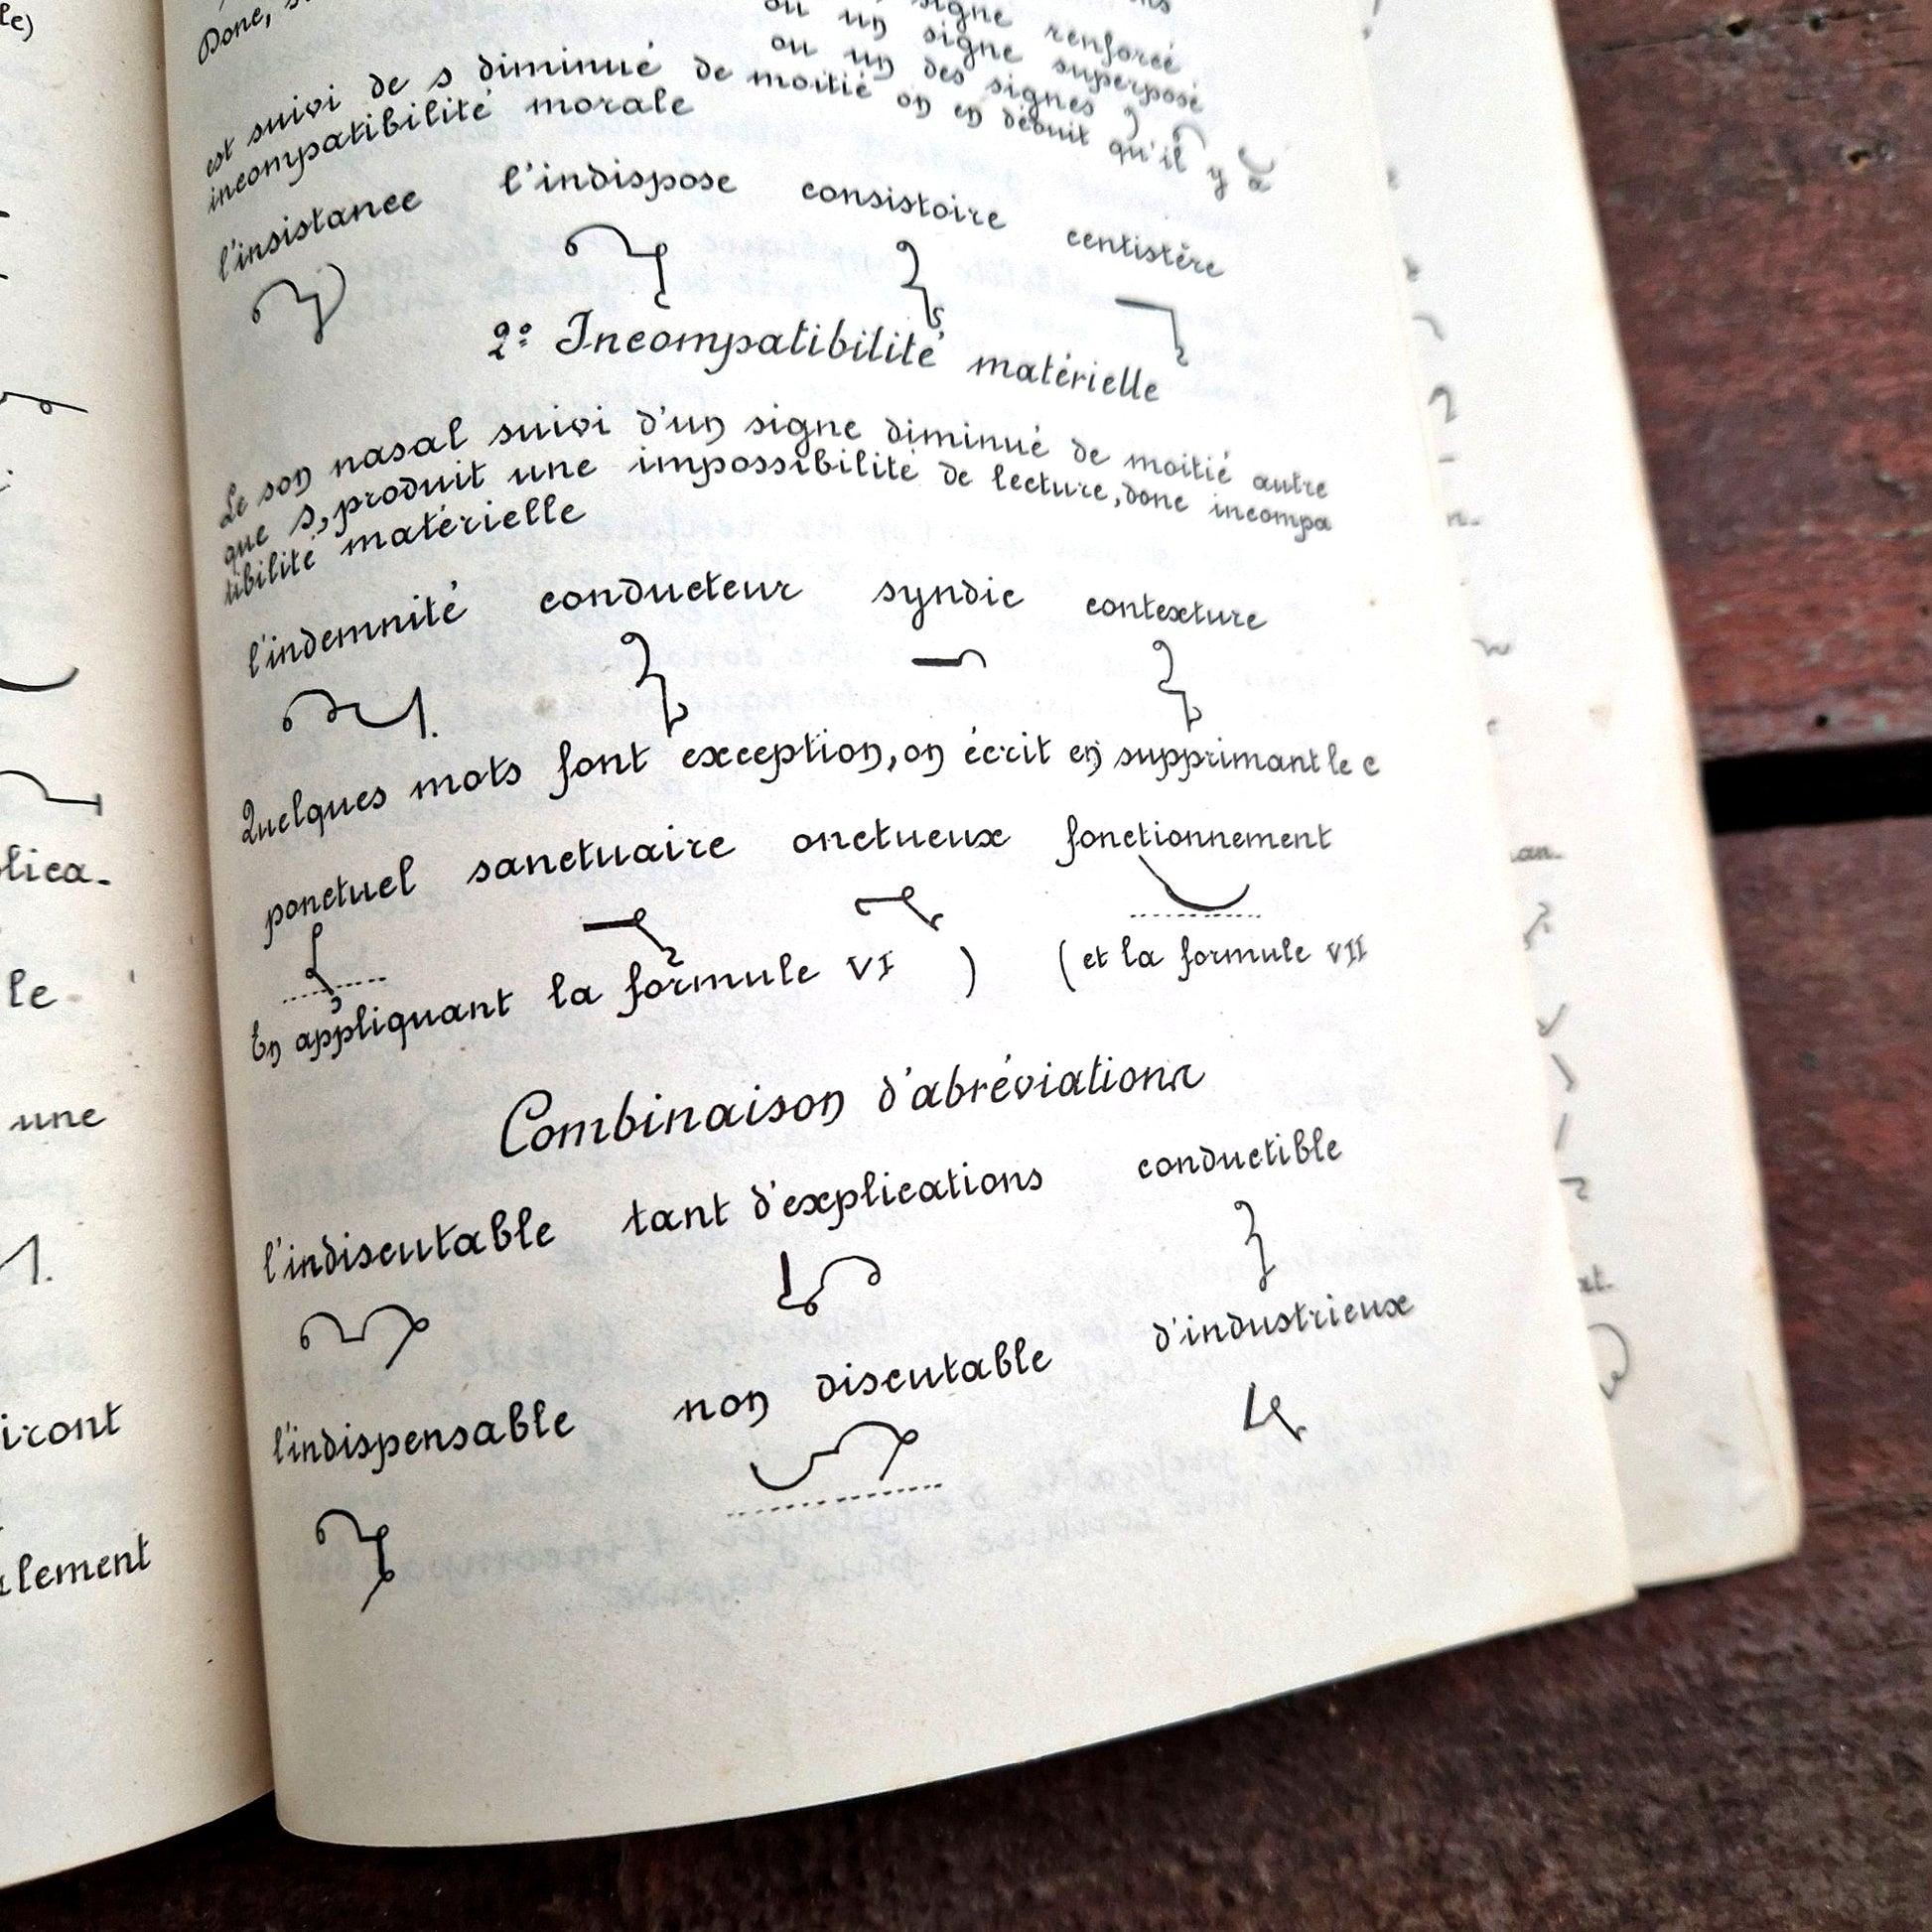 le)
Donc, s
signe renforcé
ou un signe superposé
ou un des signes
est suivi de s diminué de moitié on en déduit qu'il y a
incompatibilité morale
l'insistance l'indispose consistoire centistère
2º: Incompatibilité matérielle
Le son nasal suivi d'un signe diminué de moitié autre
que s, produit une impossibilité de lecture, donc incompa
tibilité matérielle
l'indemnité conducteur syndic contexture
Quelques mots font exception, on écrit en supprimant le c
ponctuel sanctuaire onctueux fonctionnement
En appliquant la formule VI ) ( et la formule VII
Combinaison d'abréviations
l'indiscutable tant d'explications conductible
l'indispensable non discutable d'industrieux
plica-
le
une
iront
lement
n-
an-
at-